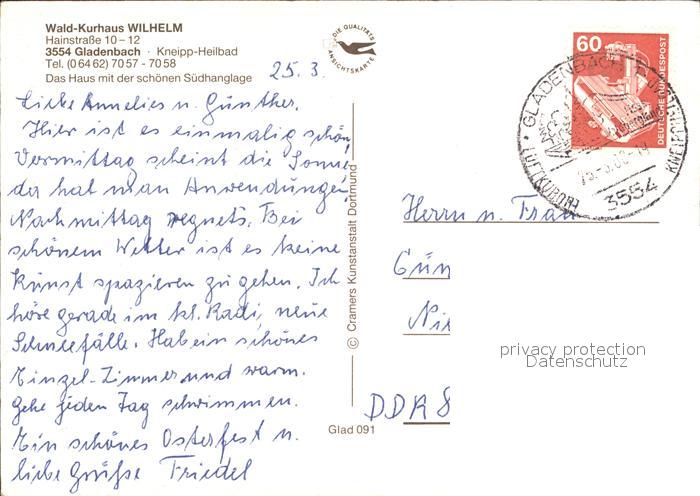 Wald-Kurhaus WILHELM
Hainstraße 10 – 12
3554 Gladenbach · Kneipp-Heilbad
Tel. (0 64 62) 70 57 - 70 58
Das Haus mit der schönen Südhanglage
DIE QUALITÄTS
ANSICHTSKARTE
25. 3.
Liebe Annelies u. Günther.
Hier ist es einmalig schön,
Vormittag scheint die Sonne
da hat man Anwendungen,
Nachmittag regnets. Bei
schönem Wetter ist es keine
Kunst spazieren zu gehen. Ich
höre gerade im kl. Radi, neue
Schneefälle. Hab ein schönes
Einzel-Zimmer und warm.
Gehe jeden Tag schwimmen.
Ein schönes Osterfest u.
liebe Grüße Friedel
© Cramers Kunstanstalt Dortmund
Glad 091
60
DEUTSCHE BUNDESPOST
GLADENBACH
LUFTKURORT
KNEIPP
3554
Herrn u. Frau
Gün
Ni
DDR 8
privacy protection
Datenschutz